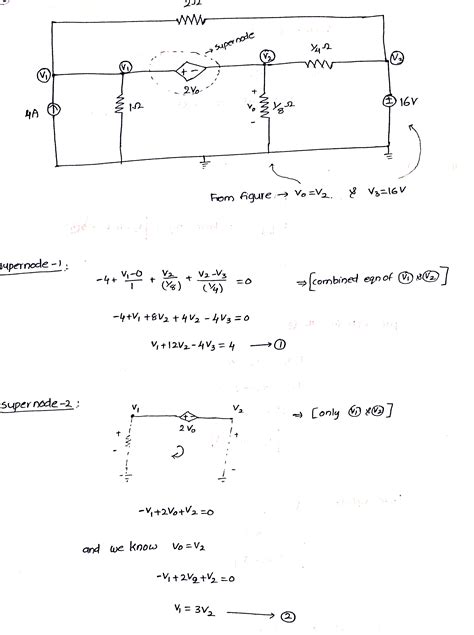 2Ω
supernode
V1
V1
V2
1/4 Ω
V3
+ -
2V0
4A
1Ω
+
V0
-
1/8 Ω
+
-
16V
From figure → V0 = V2 & V3 = 16V
supernode-1:
-4 + (V1-0)/1 + V2/(1/8) + (V2-V3)/(1/4) = 0 ⇒ [combined eqn of V1 & V2]
-4+V1+8V2+4V2-4V3=0
V1+12V2-4V3=4 → 1
supernode-2:
V1 V2 ⇒ [only V1 & V2]
+ -
2V0
+ +
- -
-V1+2V0+V2=0
and we know V0=V2
-V1+2V2+V2=0
V1=3V2 → 2